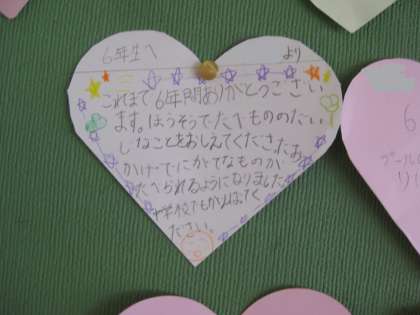 ６年生へ
より
これまで６年間ありがとうござい
ます。ほうそうでたべもののたい
じなことをおしえてくださったお
かげでにがてなものが
たべられるようになりました。
中学校でもがんばってく
ださい。
６
プール
り